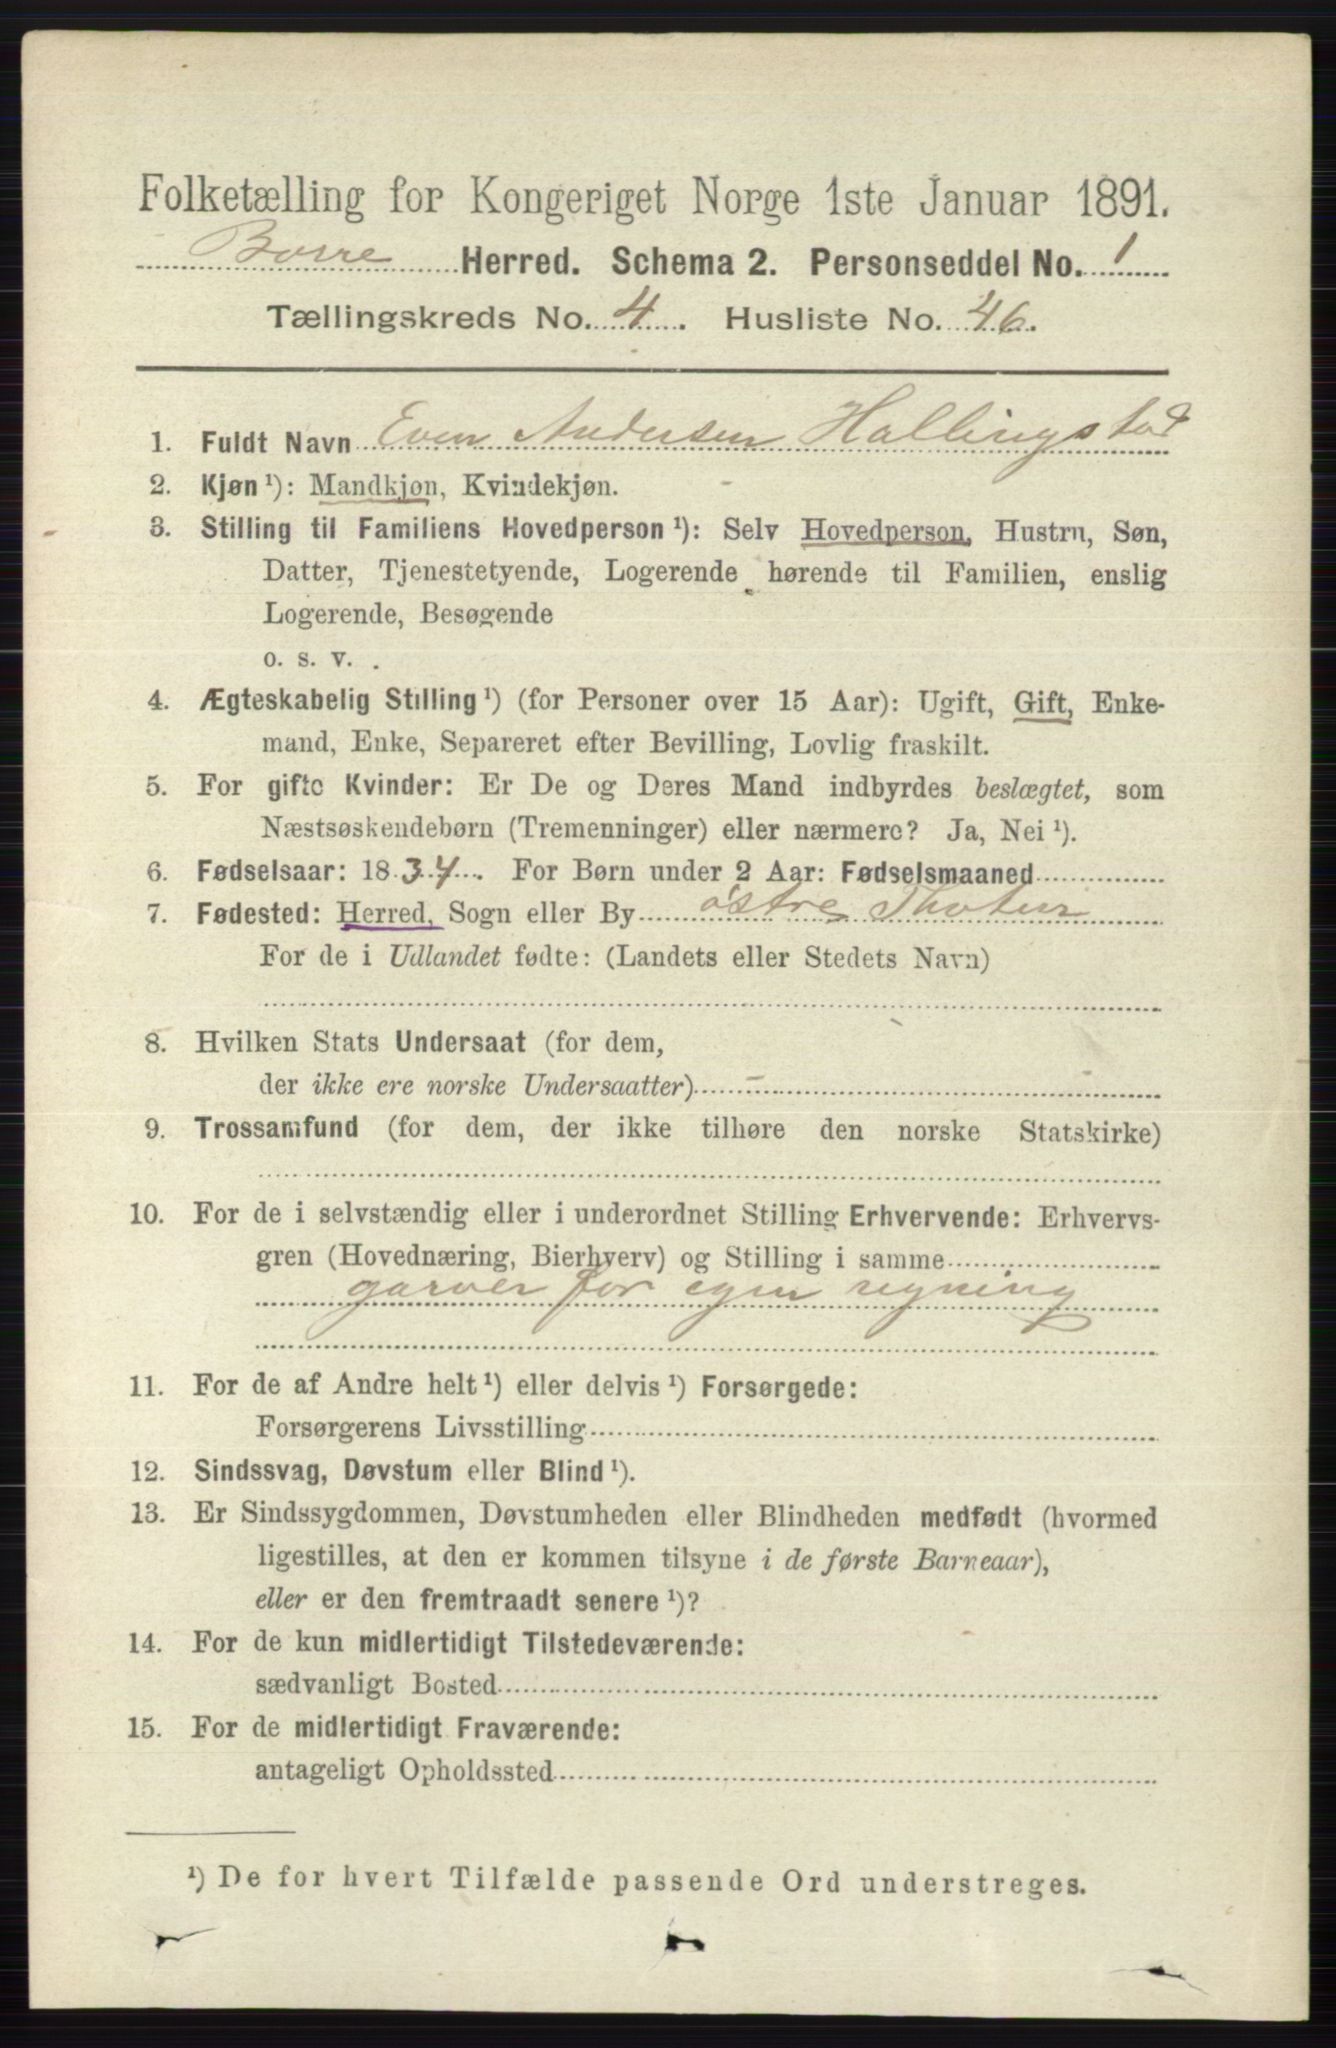 Folketælling for Kongeriget Norge 1ste Januar 1891.
Borre Herred. Schema 2. Personseddel No. 1
Tællingskreds No. 4. Husliste No. 46.
1. Fuldt Navn Even Andersen Hallingstad
2. Kjøn ¹): Mandkjøn, Kvindekjøn.
3. Stilling til Familiens Hovedperson ¹): Selv Hovedperson, Hustru, Søn,
Datter, Tjenestetyende, Logerende hørende til Familien, enslig
Logerende, Besøgende
o. s. v. .
4. Ægteskabelig Stilling ¹) (for Personer over 15 Aar): Ugift, Gift, Enke-
mand, Enke, Separeret efter Bevilling, Lovlig fraskilt.
5. For gifte Kvinder: Er De og Deres Mand indbyrdes beslægtet, som
Næstsøskendebørn (Tremenninger) eller nærmere? Ja, Nei ¹).
6. Fødselsaar: 1834. For Børn under 2 Aar: Fødselsmaaned
7. Fødested: Herred, Sogn eller By østre Thoten
For de i Udlandet fødte: (Landets eller Stedets Navn)
8. Hvilken Stats Undersaat (for dem,
der ikke ere norske Undersaatter)
9. Trossamfund (for dem, der ikke tilhøre den norske Statskirke)
10. For de i selvstændig eller i underordnet Stilling Erhvervende: Erhvervs-
gren (Hovednæring, Bierhverv) og Stilling i samme
garver for egen regning
11. For de af Andre helt ¹) eller delvis ¹) Forsørgede:
Forsørgerens Livsstilling
12. Sindssvag, Døvstum eller Blind ¹).
13. Er Sindssygdommen, Døvstumheden eller Blindheden medfødt (hvormed
ligestilles, at den er kommen tilsyne i de første Barneaar),
eller er den fremtraadt senere ¹)?
14. For de kun midlertidigt Tilstedeværende:
sædvanligt Bosted
15. For de midlertidigt Fraværende:
antageligt Opholdssted
¹) De for hvert Tilfælde passende Ord understreges.